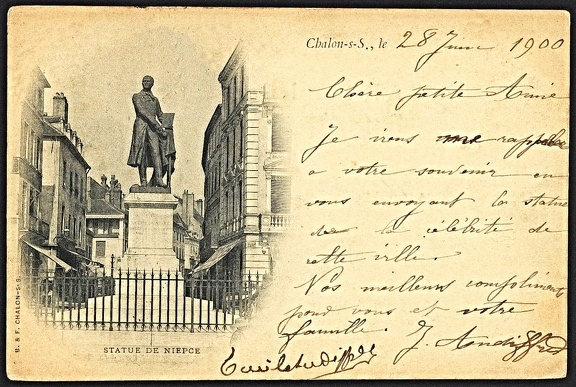 Chalon-s-S., le 28 Juin 1900
Chère petite Amie
Je viens me rappeler
a votre souvenir en
vous envoyant la statue
de la célébrité de
cette ville.
Nos meilleurs compliments
pour vous et votre
famille.
J.
STATUE DE NIEPCE
B. & F. CHALON-S-S.